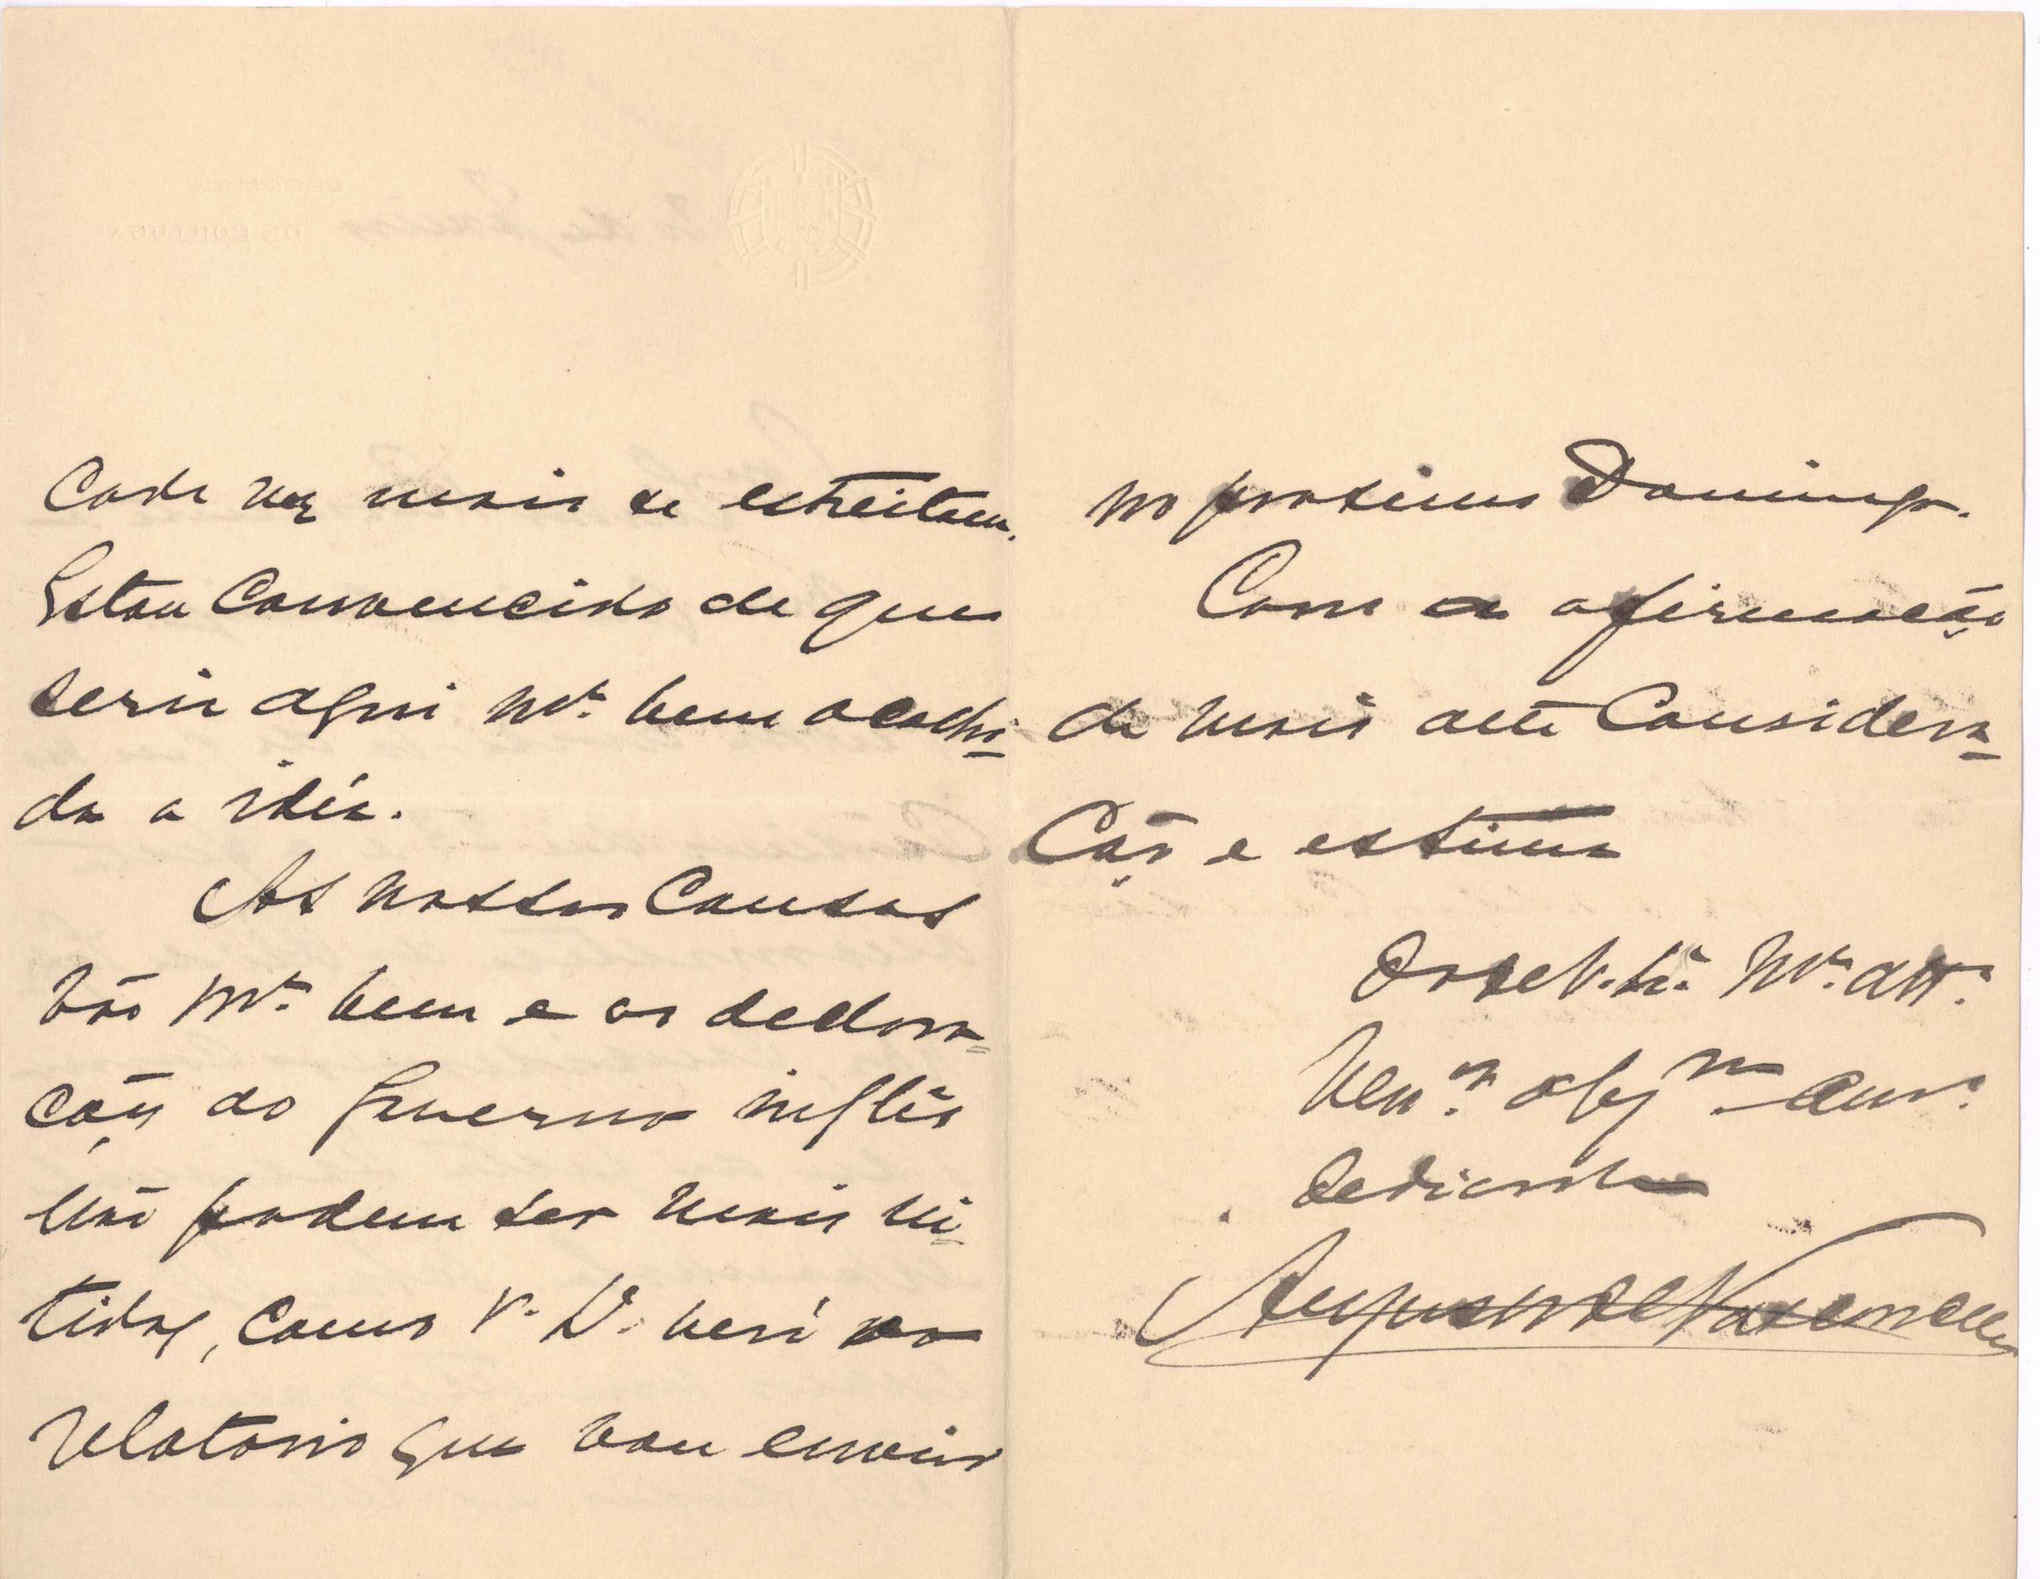 Cada vez mais se estreitam.
Estou Convencido de que
seria aqui mto. bem acolhi-
da a idéa.
As nossas Cousas
vão mto. bem e as declara-
cões do Governo inglês
não podem ser mais ni-
tidas, como V. Exa. verá no
relatorio que vou enviar
no proximo Domingo.
Com a afirmação
da mais alta Considera-
Ção e estima
De V. Exa. Mto. atto.
Venor. obgmo. amo.
dedicado
Augusto de Vasconcellos